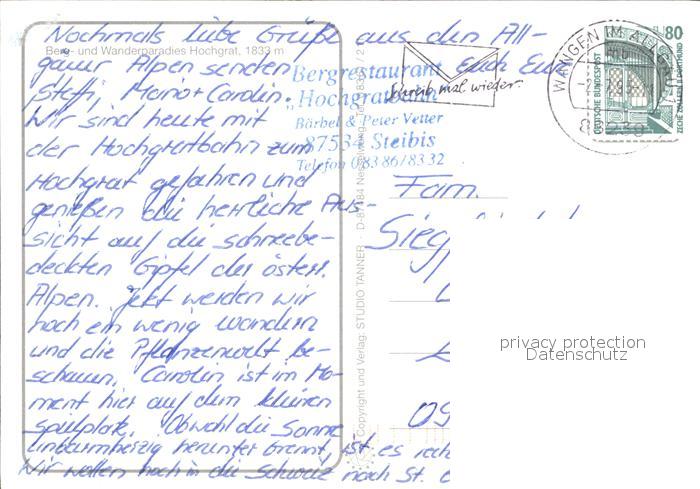 Nochmals liebe Grüße aus den All-
Berg- und Wanderparadies Hochgrat, 1833 m
gäuer Alpen senden Euch Eure
Steffi, Mario + Carolin.
Wir sind heute mit
der Hochgratbahn zum
Hochgrat gefahren und
genießen die herrliche Aus-
sicht auf die schneebe-
deckten Gipfel der österr.
Alpen. Jetzt werden wir
noch ein wenig wandern
und die Pflanzenwelt be-
schauen. Carolin ist im Mo-
ment hier auf dem kleinen
Spielplatz. Obwohl die Sonne
unbarmherzig herunter brennt, ist es
Wir wollen noch in die Schweiz nach St.
Bergrestaurant
"Hochgratbahn"
Bärbel & Peter Vetter
87534 Steibis
Telefon 08386/8332
Schreib mal wieder.
WANGEN IM ALLGÄU
88239
80
DEUTSCHE BUNDESPOST
ZECHE ZOLLERN II DORTMUND
Copyright und Verlag: STUDIO TANNER
Fam.
Sieg
09
privacy protection
Datenschutz